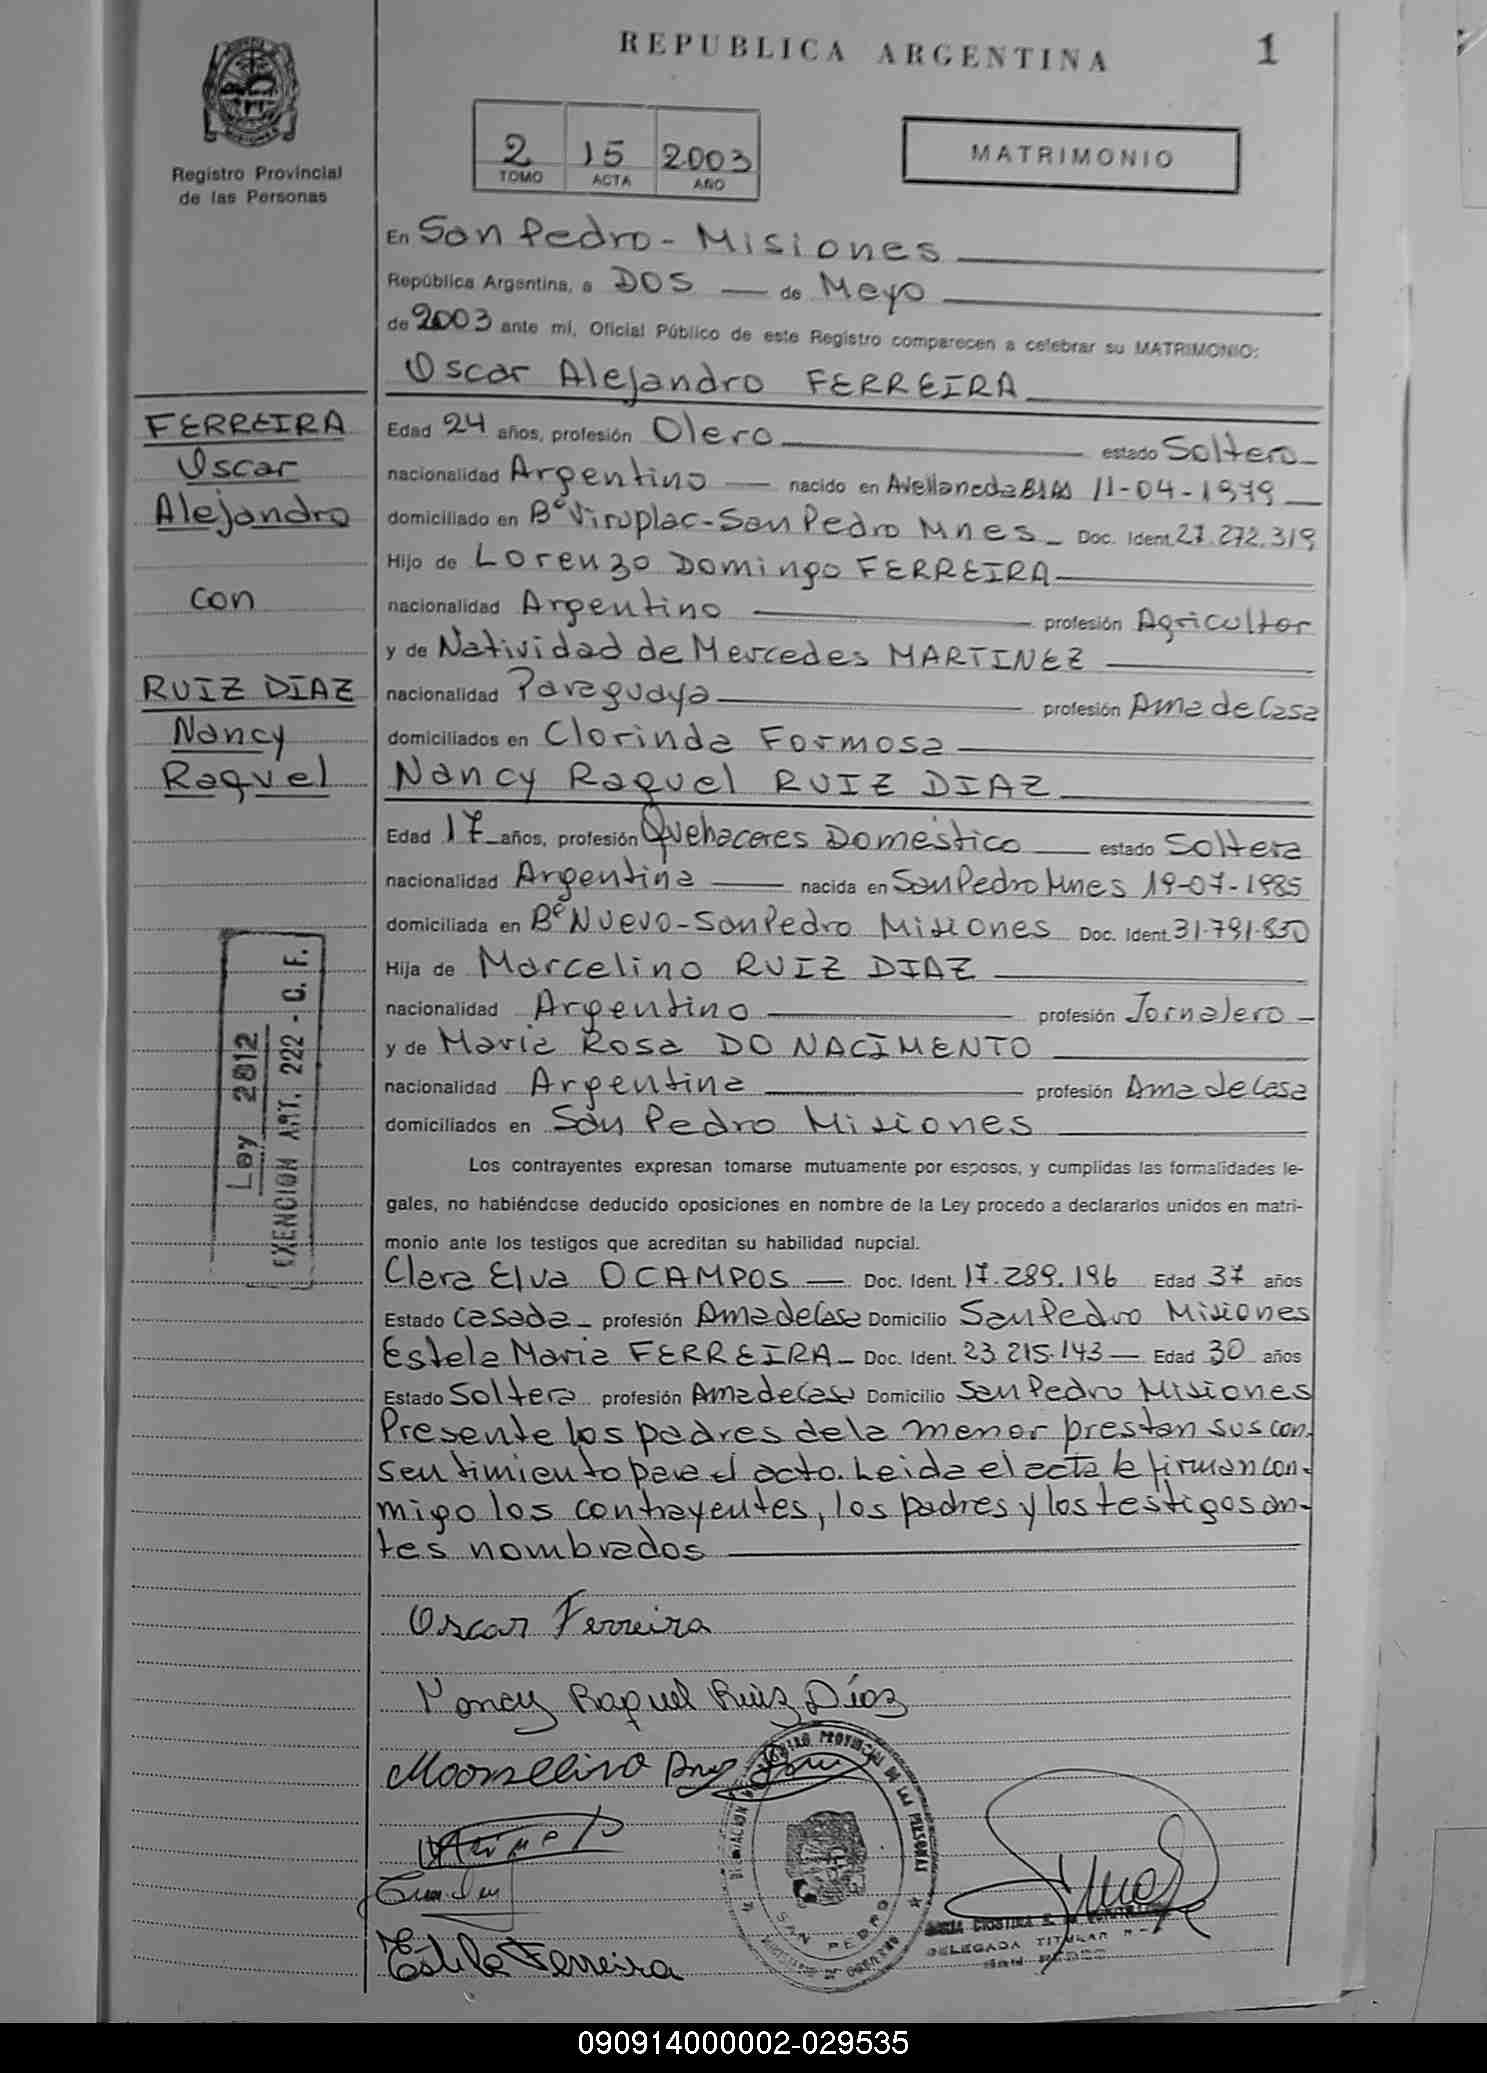 REPUBLICA ARGENTINA
1
Registro Provincial
de las Personas
2 15 2003
TOMO ACTA AÑO
MATRIMONIO
En San Pedro - Misiones
República Argentina, a DOS de Mayo
de 2003 ante mí, Oficial Público de este Registro comparecen a celebrar su MATRIMONIO:
Oscar Alejandro FERREIRA
FERREIRA
Oscar
Alejandro
con
RUIZ DIAZ
Nancy
Raquel
Edad 24 años, profesión Olero estado Soltero
nacionalidad Argentino nacido en Avellaneda BsAs 11-04-1979
domiciliado en Bº Viruplac - San Pedro Mnes Doc. Ident. 27.272.319
Hijo de Lorenzo Domingo FERREIRA
nacionalidad Argentino profesión Agricultor
y de Natividad de Mercedes MARTINEZ
nacionalidad Paraguaya profesión Ama de Casa
domiciliados en Clorinda Formosa
Nancy Raquel RUIZ DIAZ
Edad 17 años, profesión Quehaceres Doméstico estado Soltera
nacionalidad Argentina nacida en San Pedro Mnes 19-07-1985
domiciliada en Bº Nuevo - San Pedro Misiones Doc. Ident. 31.791.850
Hija de Marcelino RUIZ DIAZ
nacionalidad Argentino profesión Jornalero
y de Maria Rosa DO NACIMENTO
nacionalidad Argentina profesión Ama de Casa
domiciliados en San Pedro Misiones
Ley 2812
EXENCION ART. 222 - C. F.
Los contrayentes expresan tomarse mutuamente por esposos, y cumplidas las formalidades le-
gales, no habiéndose deducido oposiciones en nombre de la Ley procedo a declararlos unidos en matri-
monio ante los testigos que acreditan su habilidad nupcial.
Clara Elva OCAMPOS Doc. Ident. 17.289.196 Edad 37 años
Estado Casada profesión Ama de Casa Domicilio San Pedro Misiones
Estela Maria FERREIRA Doc. Ident. 23.215.143 Edad 30 años
Estado Soltera profesión Ama de Casa Domicilio San Pedro Misiones
Presente los padres de la menor prestan su con
sentimiento para el acto. Leida el acta la firman con-
migo los contrayentes, los padres y los testigos an-
tes nombrados
Oscar Ferreira
Nancy Raquel Ruiz Díaz
Marcelino
Ferreira
PROVINCIAL DE LAS PERSONAS
SAN PEDRO
DELEGADA TITULAR
SAN PEDRO
090914000002-029535